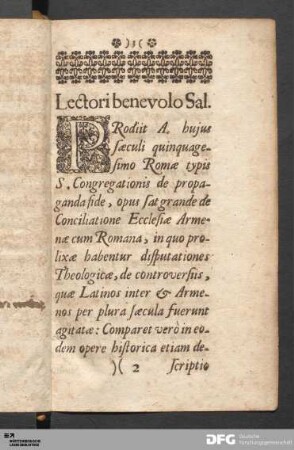 )3(
Lectori benevolo Sal.
PRodiit A. hujus
sæculi quinquage-
simo Romæ typis
S. Congregationis de propa-
ganda fide, opus sat grande de
Conciliatione Ecclesiæ Arme-
næ cum Romana, in quo pro-
lixæ habentur disputationes
Theologicæ, de controversiis,
quæ Latinos inter & Arme-
nos per plura sæcula fuerunt
agitatæ: Comparet verò in eo-
dem opere historica etiam de-
)( 2 scriptio
DFG Deutsche
Forschungsgemeinschaft